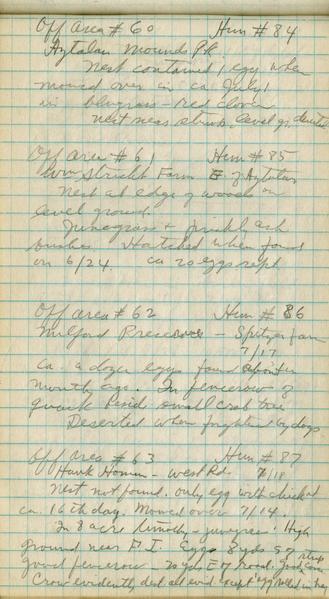 Off Area # 60 Hun # 84
Aztalan Mounds Pk
Nest contained 1 egg when
mowed over in ca. July 1
in bluegrass - red clover
nest near shrub, level gr. deserted
Off area # 61 Hun # 85
Wm Stricht Farm E of Aztalan
Nest at edge of woods on
level ground.
Junegrass & prickly ash
bushes. Hatched when found
on 6/24. ca 20 eggs
Off area # 62 Hun # 86
Milford Preserve - Spitzer farm
7/17
ca. a dozen eggs found about a
month ago. In fencerow of
quack small crab tree
Deserted when frightened by dogs
Off area # 63 Hun # 87
Hawk Homan - West Rd. 7/18
Nest not found. only egg with chick at
ca. 16th day. Mowed over 7/14.
In 8 acre timothy - junegrass. High
ground near P.I. Eggs 8 yds S of
good fencerow. 20 yds E of road.
Crow evidently dest. all evid. except egg rolled in